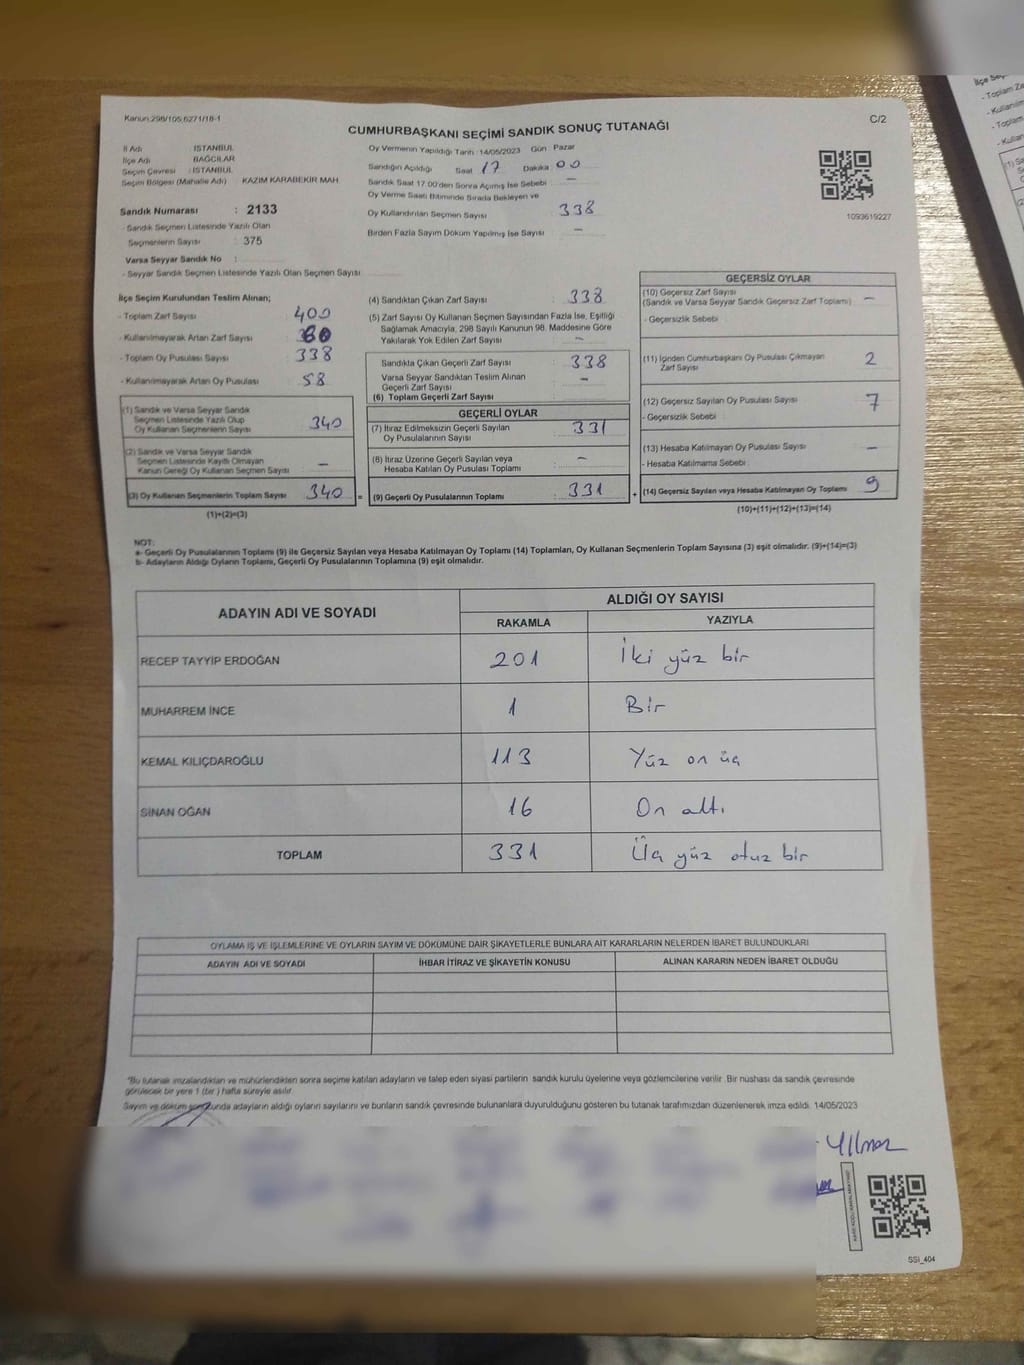 Kanun:298/105;6271/18-1
C/2
CUMHURBAŞKANI SEÇİMİ SANDIK SONUÇ TUTANAĞI
İl Adı : İSTANBUL
İlçe Adı BAĞCILAR
Seçim Çevresi : İSTANBUL
Seçim Bölgesi (Mahalle Adı) KAZIM KARABEKİR MAH.
Sandık Numarası : 2133
- Sandık Seçmen Listesinde Yazılı Olan
Seçmenlerin Sayısı : 375
Varsa Seyyar Sandık No :
- Seyyar Sandık Seçmen Listesinde Yazılı Olan Seçmen Sayısı
Oy Vermenin Yapıldığı Tarih :14/05/2023 Gün Pazar
Sandığın Açıldığı Saat 17 Dakika 00
Sandık Saat 17.00'den Sonra Açılmış İse Sebebi : –
Oy Verme Saati Bitiminde Sırada Bekleyen ve
Oy Kullandırılan Seçmen Sayısı : 338
Birden Fazla Sayım Döküm Yapılmış İse Sayısı : –
1093619227
İlçe Seçim Kurulundan Teslim Alınan;
- Toplam Zarf Sayısı : 400
- Kullanılmayarak Artan Zarf Sayısı : 60
- Toplam Oy Pusulası Sayısı : 338
- Kullanılmayarak Artan Oy Pusulası : 58
(1) Sandık ve Varsa Seyyar Sandık
Seçmen Listesinde Yazılı Olup
Oy Kullanan Seçmenlerin Sayısı 340
(2) Sandık ve Varsa Seyyar Sandık
Seçmen Listesinde Kayıtlı Olmayan
Kanun Gereği Oy Kullanan Seçmen Sayısı –
(3) Oy Kullanan Seçmenlerin Toplam Sayısı 340 =
(1)+(2)=(3)
(4) Sandıktan Çıkan Zarf Sayısı : 338
(5) Zarf Sayısı Oy Kullanan Seçmen Sayısından Fazla İse, Eşitliği
Sağlamak Amacıyla, 298 Sayılı Kanunun 98. Maddesine Göre
Yakılarak Yok Edilen Zarf Sayısı : –
Sandıkta Çıkan Geçerli Zarf Sayısı : 338
Varsa Seyyar Sandıktan Teslim Alınan
Geçerli Zarf Sayısı : –
(6) Toplam Geçerli Zarf Sayısı :
GEÇERLİ OYLAR
(7) İtiraz Edilmeksizin Geçerli Sayılan
Oy Pusulalarının Sayısı : 331
(8) İtiraz Üzerine Geçerli Sayılan veya
Hesaba Katılan Oy Pusulası Toplamı : –
(9) Geçerli Oy Pusulalarının Toplamı : 331 +
GEÇERSİZ OYLAR
(10) Geçersiz Zarf Sayısı
(Sandık ve Varsa Seyyar Sandık Geçersiz Zarf Toplamı) –
- Geçersizlik Sebebi :
(11) İçinden Cumhurbaşkanı Oy Pusulası Çıkmayan
Zarf Sayısı 2
(12) Geçersiz Sayılan Oy Pusulası Sayısı 7
- Geçersizlik Sebebi :
(13) Hesaba Katılmayan Oy Pusulası Sayısı –
- Hesaba Katılmama Sebebi :
(14) Geçersiz Sayılan veya Hesaba Katılmayan Oy Toplamı 9
(10)+(11)+(12)+(13)=(14)
NOT:
a- Geçerli Oy Pusulalarının Toplamı (9) ile Geçersiz Sayılan veya Hesaba Katılmayan Oy Toplamı (14) Toplamları, Oy Kullanan Seçmenlerin Toplam Sayısına (3) eşit olmalıdır. (9)+(14)=(3)
b- Adayların Aldığı Oyların Toplamı, Geçerli Oy Pusulalarının Toplamına (9) eşit olmalıdır.
ADAYIN ADI VE SOYADI
ALDIĞI OY SAYISI
RAKAMLA YAZIYLA
RECEP TAYYİP ERDOĞAN 201 İki yüz bir
MUHARREM İNCE 1 Bir
KEMAL KILIÇDAROĞLU 113 Yüz on üç
SİNAN OĞAN 16 On altı
TOPLAM 331 Üç yüz otuz bir
OYLAMA İŞ VE İŞLEMLERİNE VE OYLARIN SAYIM VE DÖKÜMÜNE DAİR ŞİKAYETLERLE BUNLARA AİT KARARLARIN NELERDEN İBARET BULUNDUKLARI
ADAYIN ADI VE SOYADI İHBAR İTİRAZ VE ŞİKAYETİN KONUSU ALINAN KARARIN NEDEN İBARET OLDUĞU
*Bu tutanak imzalandıktan ve mühürlendikten sonra seçime katılan adayların ve talep eden siyasi partilerin sandık kurulu üyelerine veya gözlemcilerine verilir .Bir nüshası da sandık çevresinde
görülecek bir yere 1 (bir ) hafta süreyle asılır.
Sayım ve döküm sonucunda adayların aldığı oyların sayılarını ve bunların sandık çevresinde bulunanlara duyurulduğunu gösteren bu tutanak tarafımızdan düzenlenerek imza edildi. 14/05/2023
Yılmaz
SSİ_404